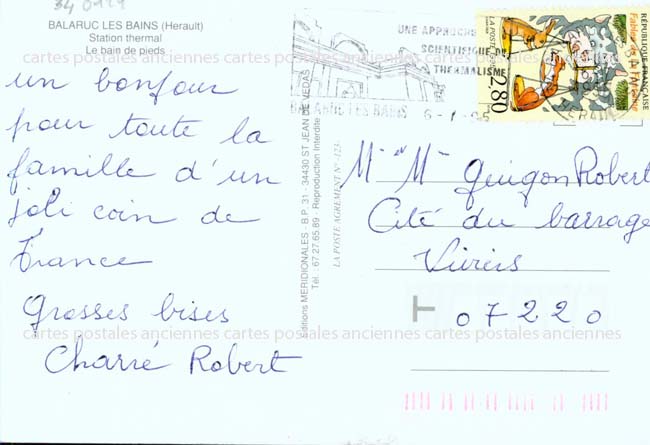 34 0929
BALARUC LES BAINS (Herault)
Station thermal
Le bain de pieds
UNE APPROCHE
SCIENTIFIQUE DU
THERMALISME
BALARUC LES BAINS
LA POSTE
2,80
Fables de La Fontaine
RÉPUBLIQUE FRANÇAISE
cartes postales anciennes cartes postales anciennes cartes postales anciennes
un bonjour
pour toute la
famille d'un
joli coin de
France
Grosses bises
Charré Robert
Editions MERIDIONALES - B.P. 31 - 34430 ST JEAN DE VEDAS
Tél. 67 27 65 89 - Reproduction Interdite
LA POSTE AGREMENT N° -123-
Mr Me Guigon Robert
Cité du barrage
Viviers
07220
cartes postales anciennes cartes postales anciennes cartes postales anciennes